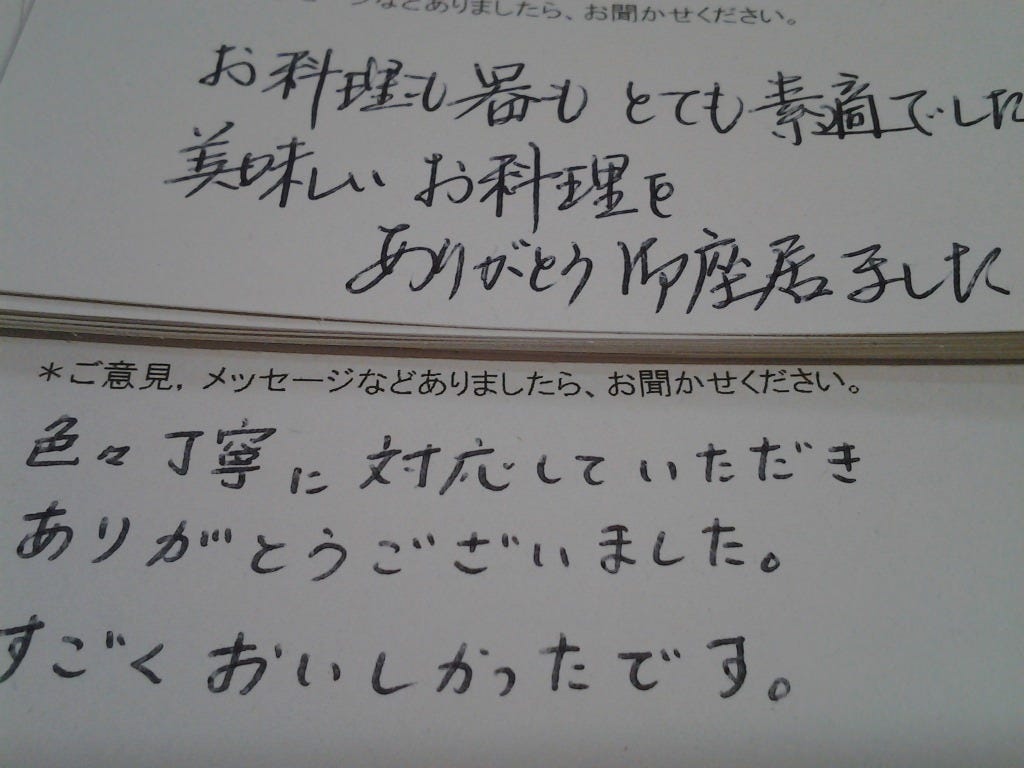 ージなどありましたら、お聞かせください。
お料理も器もとても素適でした
美味しいお料理を
ありがとう御座居ました
＊ご意見，メッセージなどありましたら、お聞かせください。
色々丁寧に対応していただき
ありがとうございました。
すごくおいしかったです。